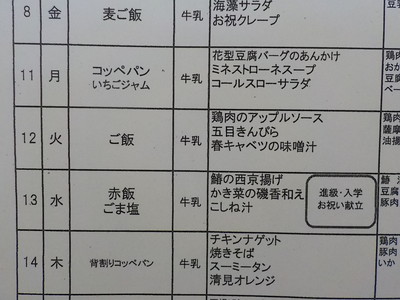 8 金 麦ご飯 牛乳 海藻サラダ
お祝クレープ
11 月 コッペパン 牛乳 花型豆腐バーグのあんかけ 鶏肉
いちごジャム ミネストローネスープ
コールスローサラダ
12 火 ご飯 牛乳 鶏肉のアップルソース 鶏肉
五目きんぴら 薩摩
春キャベツの味噌汁 油揚
13 水 赤飯 牛乳 鰆の西京揚げ 進級・入学 鰆
ごま塩 かき菜の磯香和え お祝い献立 豆腐
こしね汁 豚肉
14 木 背割りコッペパン 牛乳 チキンナゲット 鶏肉
焼きそば 豚肉
スーミータン いか
清見オレンジ